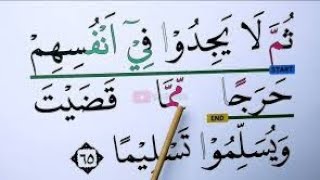 ثُمَّ لَا يَجِدُوْا فِيْٓ اَنْفُسِهِمْ
START
حَرَجًا مِّمَّا قَضَيْتَ
END
وَيُسَلِّمُوْا تَسْلِيْمًا ٦٥